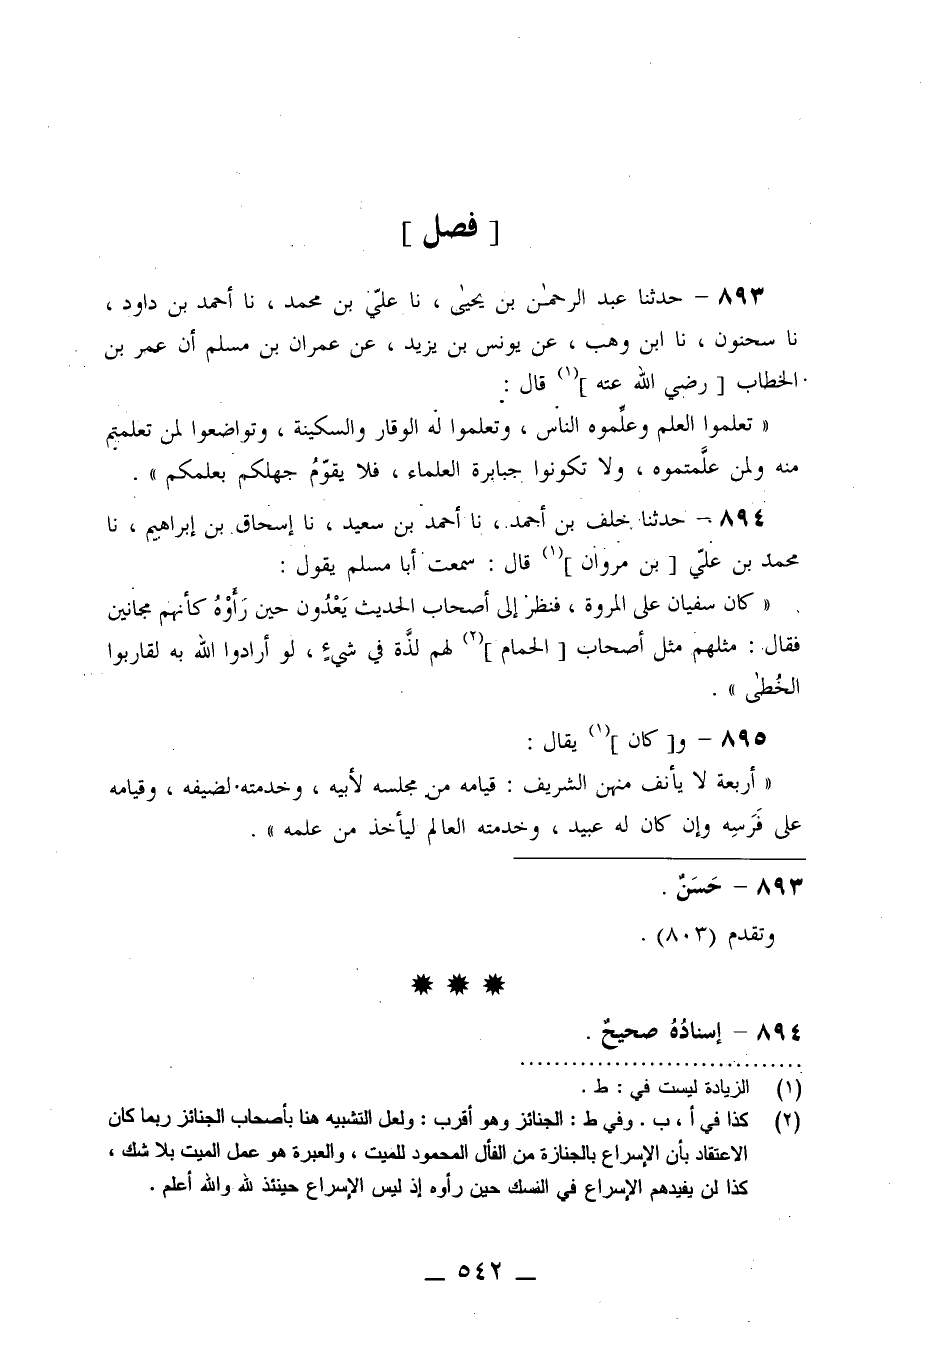 [ فصل ]
٨٩٣ – حدثنا عبد الرحمٰن بن يحيىٰ ، نا عليّ بن محمد ، نا أحمد بن داود ،
نا سحنون ، نا ابن وهب ، عن يونس بن يزيد ، عن عمران بن مسلم أن عمر بن
الخطاب [ رضي الله عنه ](١) قال :
« تعلموا العلم وعلِّموه الناس ، وتعلموا له الوقار والسكينة ، وتواضعوا لمن تعلمتم
منه ولمن علَّمتموه ، ولا تكونوا جبابرة العلماء ، فلا يقوّمُ جهلكم بعلمكم » .
٨٩٤ – حدثنا خلف بن أحمد ، نا أحمد بن سعيد ، نا إسحاق بن إبراهيم ، نا
محمد بن عليّ [ بن مروان ](١) قال : سمعت أبا مسلم يقول :
« كان سفيان على المروة ، فنظر إلى أصحاب الحديث يَعْدُون حين رَأَوْهُ كأنهم مجانين
فقال : مثلهم مثل أصحاب [ الحمام ](٢) لهم لذَّة في شيءٍ ، لو أرادوا الله به لقاربوا
الخُطىٰ » .
٨٩٥ – و[ كان ](١) يقال :
« أربعة لا يأنف منهن الشريف : قيامه من مجلسه لأبيه ، وخدمته لضيفه ، وقيامه
على فَرَسِه وإن كان له عبيد ، وخدمته العالم ليأخذ من علمه » .
٨٩٣ – حَسَنٌ .
وتقدم (٨٠٣) .
✹ ✹ ✹
٨٩٤ – إسنادُهُ صحيحٌ .
(١) الزيادة ليست في : ط .
(٢) كذا في أ ، ب . وفي ط : الجنائز وهو أقرب : ولعل التشبيه هنا بأصحاب الجنائز ربما كان
الاعتقاد بأن الإسراع بالجنازة من الفأل المحمود للميت ، والعبرة هو عمل الميت بلا شك ،
كذا لن يفيدهم الإسراع في النسك حين رأوه إذ ليس الإسراع حينئذ لله والله أعلم .
— ٥٤٢ —